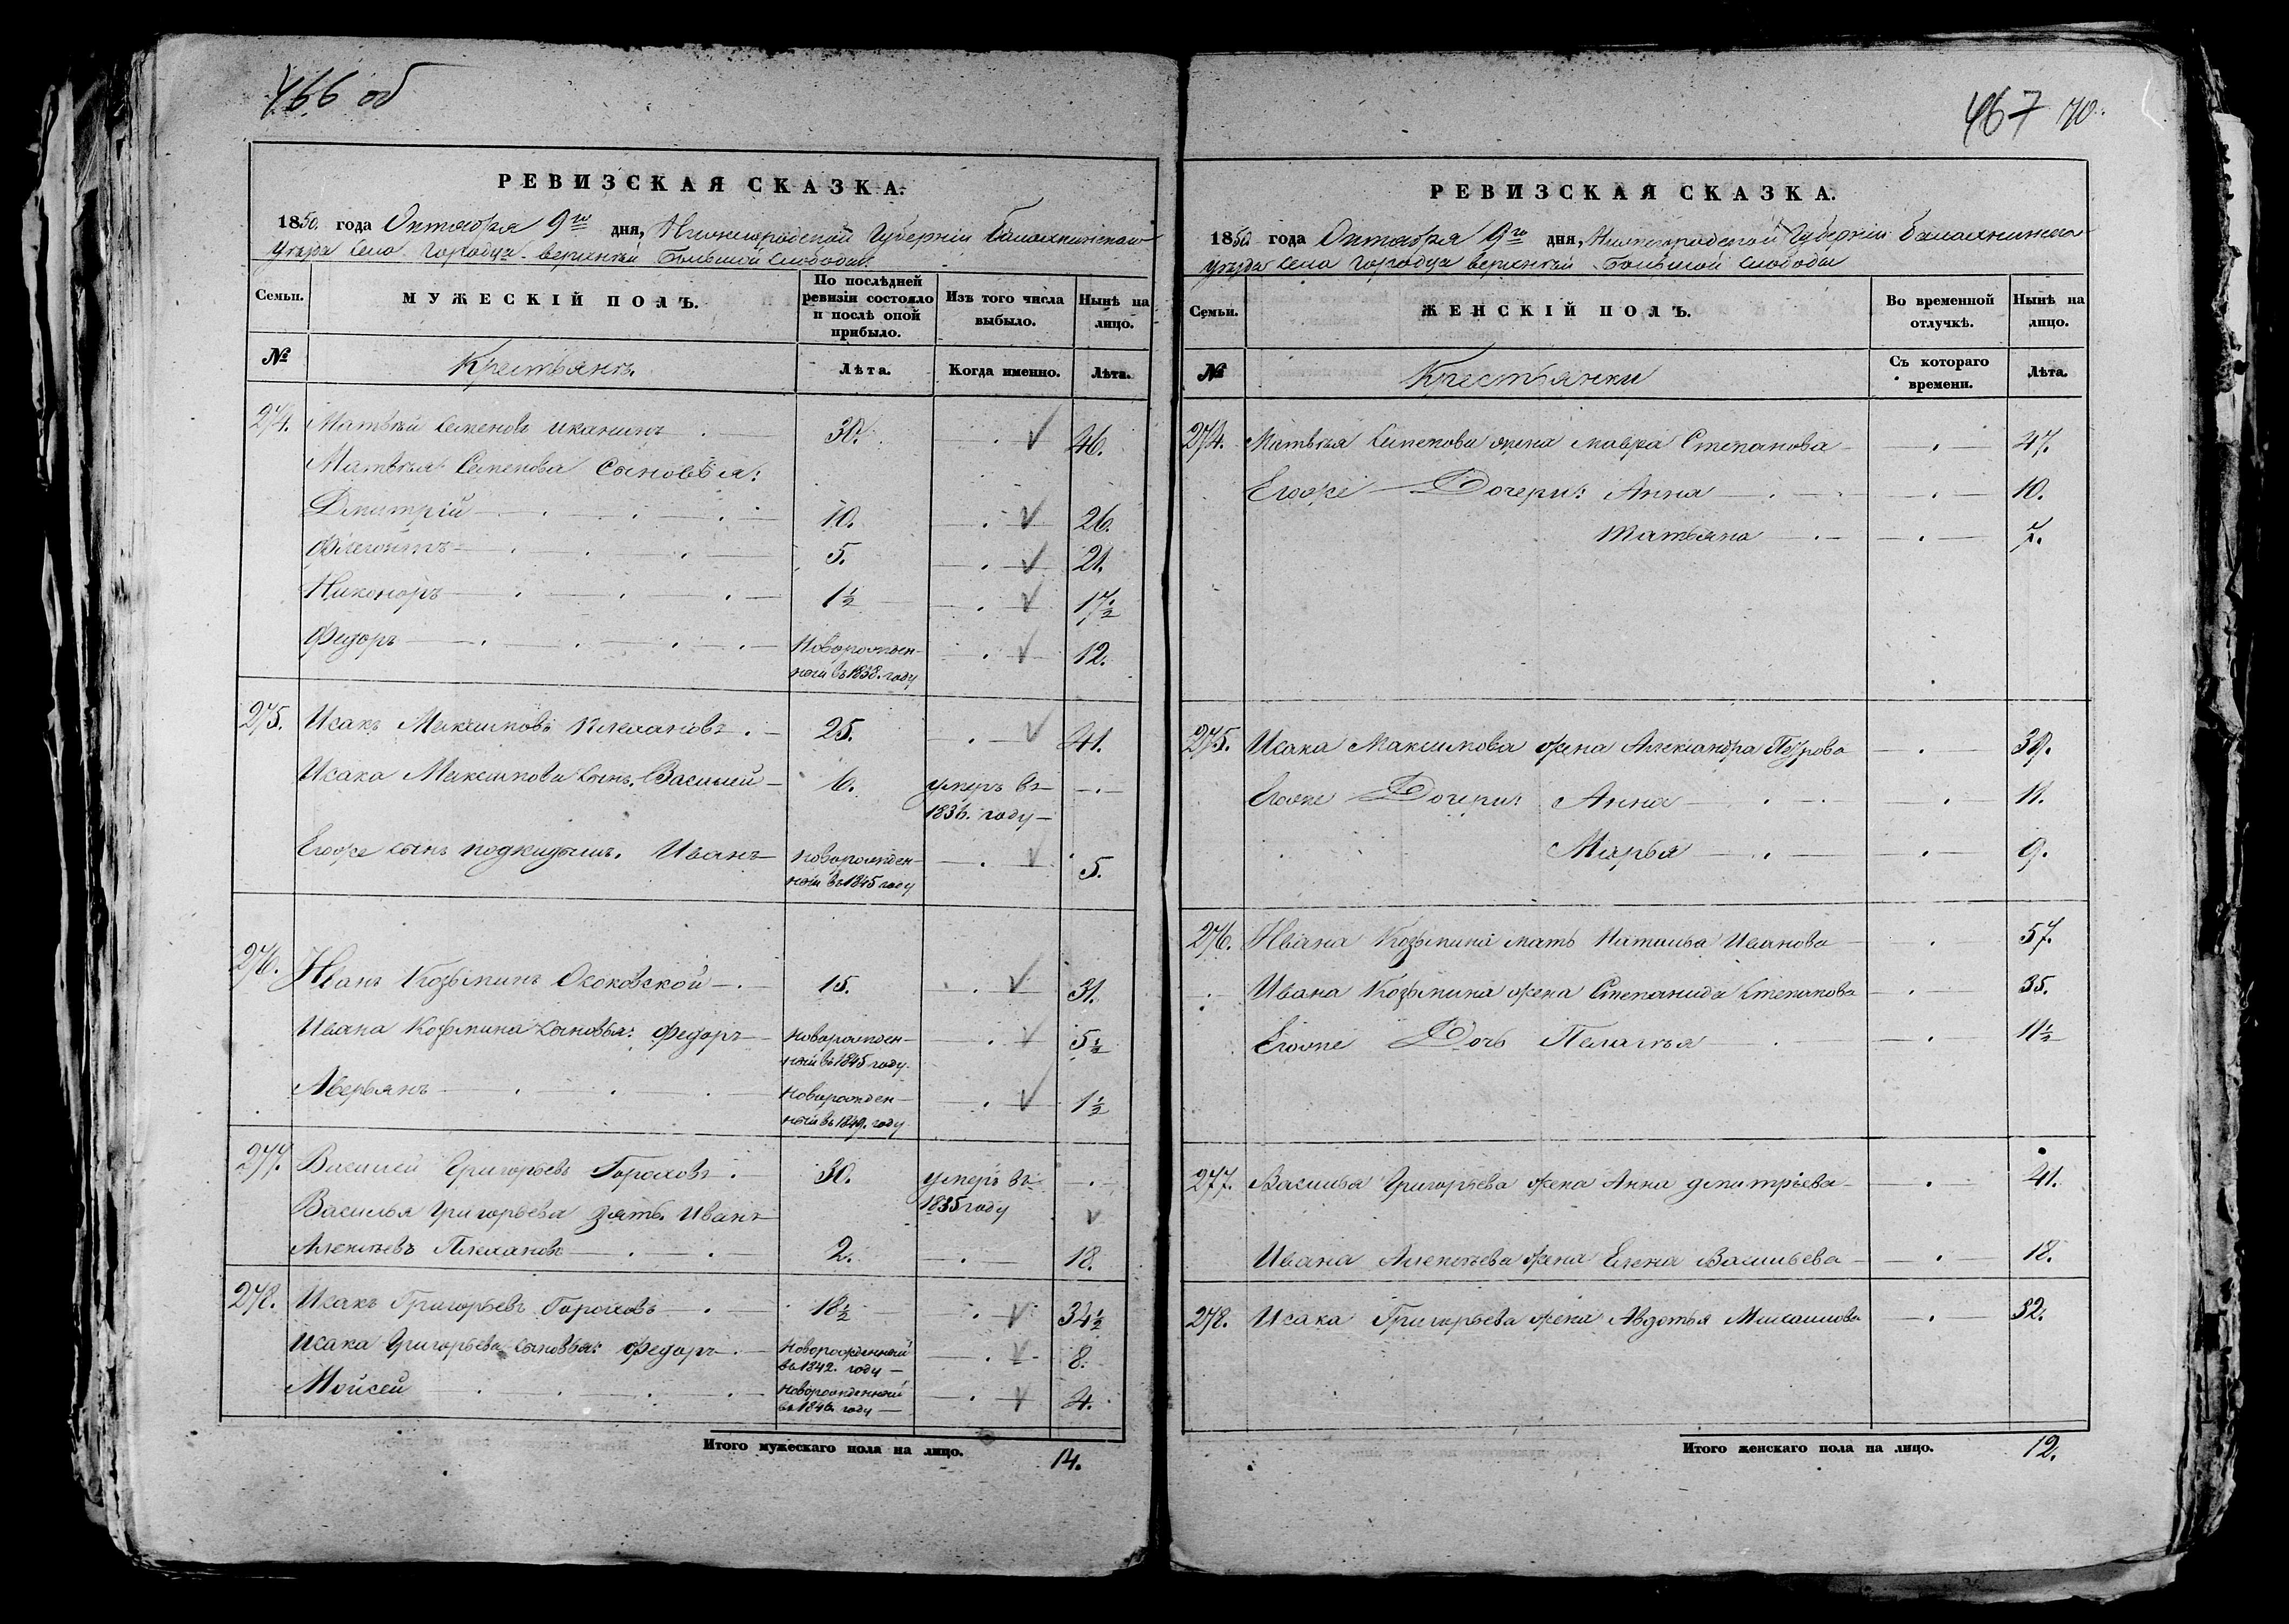 466 об
РЕВИЗСКАЯ СКАЗКА.
1850. года Октября 9го дня, Нижегородской Губерніи Балахнинскаго
Уѣзда Села Городца верхнѣй Большой слободы.
Семьи. МУЖЕСКІЙ ПОЛЪ. По послѣдней ревизіи состояло и послѣ оной прибыло. Изъ того числа выбыло. Нынѣ на лицо.
№ Крестьянъ. Лѣта. Когда именно. Лѣта.
274. Матвѣй Семеновъ 30. 46.
Матвѣя Семенова Сыновья:
Дмитрій 10. 26.
Флегонтъ 5. 21.
Никоноръ 1½ 17½
Федоръ Новорожден- 12.
ной въ 1838. году
275. Исакъ Максимовъ Плехановъ. 25. 41.
Исака Максимова сынъ. Василей 6. умеръ въ
1836. году
Егоже сынъ подкидышъ. Иванъ новорожден- 5.
ной въ 1845 году
276. Иванъ Козьминъ Осоковской 15. 31.
Ивана Козьмина сыновья: Федоръ новорожден- 5½
ной въ 1845 году.
Аверьянъ новорожден- 1½
ной въ 1849. году
277. Василей Григорьевъ Гороховъ. 30. умеръ въ
1835 году
Василья Григорьева зять. Иванъ
Алексѣевъ Плехановъ 2. 18.
278. Исакъ Григорьевъ Гороховъ 18½ 34½
Исака Григорьева сыновья: Федоръ новорожденный 8.
въ 1842. году
Мойсей новорожденный 4.
въ 1846. году
Итого мужескаго пола на лицо. 14.
467 70.
РЕВИЗСКАЯ СКАЗКА.
1850 года Октября 9го дня, Нижегородской Губерніи Балахнинскаго
Уѣзда Села Городца верхнѣй Большой слободы
Семьи. ЖЕНСКІЙ ПОЛЪ. Во временной отлучкѣ. Нынѣ на лицо.
№ Крестьянки Съ котораго времени. Лѣта.
274. Матвѣя Семенова жена Мавра Степанова 47.
Егоже Дочери: Анна 10.
Татьяна 7.
275. Исака Максимова жена Александра Петрова 39.
Егоже Дочери: Анна 11.
Марья 9.
276. Ивана Козьмина мать Наталья Иванова 57.
Ивана Козьмина жена Степанида Степанова 35.
Егоже Дочь Пелагѣя 11½
277. Василья Григорьева жена Анна Дмитріева 41.
Ивана Алексѣева жена Елена Васильева 18.
278. Исака Григорьева жена Авдотья Михайлова 32.
Итого женскаго пола на лицо. 12.